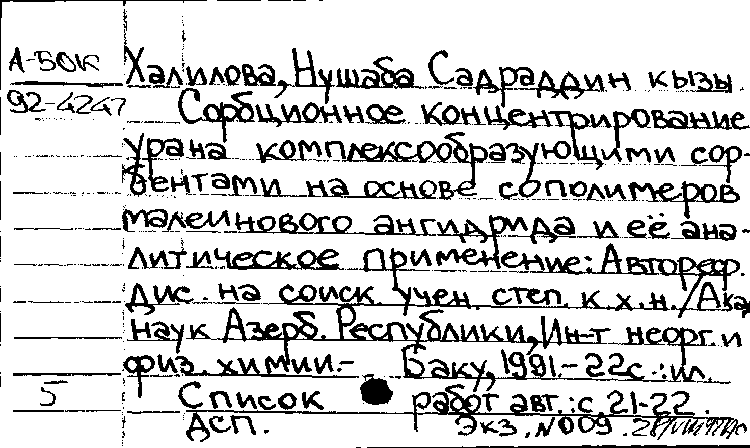 А-БОК Халилова, Нушаба Садраддин кызы.
92-4247 Сорбционное концентрирование
урана комплексообразующими сор-
бентами на основе сополимеров
малеинового ангидрида и её ана-
литическое применение: Автореф.
дис. на соиск. учен. степ. к.х.н./Ака
наук Азерб. Республики, Ин-т неорг. и
физ. химии.- Баку, 1991.- 22с.:ил.
5 Список работ авт.: с. 21-22.
Дсп. Экз. N009.